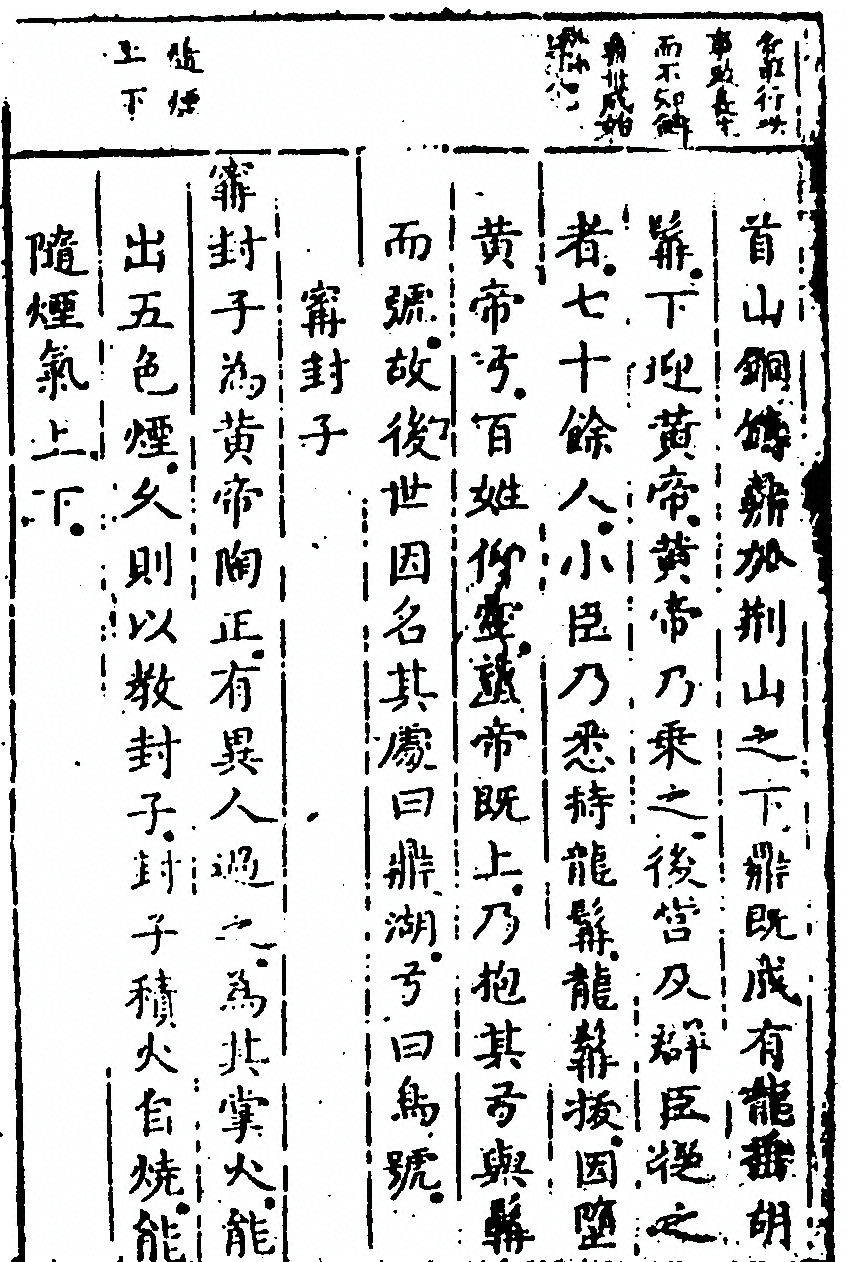 而不知
隨煙
上下
首山銅鑄鼎於荊山之下鼎既成有龍垂胡
髯下迎黃帝黃帝乃乘之後宮及群臣從之
者七十餘人小臣乃悉持龍髯龍髯拔因墮
黃帝弓百姓仰望黃帝既上乃抱其弓與髯
而號故後世因名其處曰鼎湖弓曰烏號
甯封子
甯封子為黃帝陶正有異人過之為其掌火能
出五色煙久則以教封子封子積火自燒能
隨煙氣上下